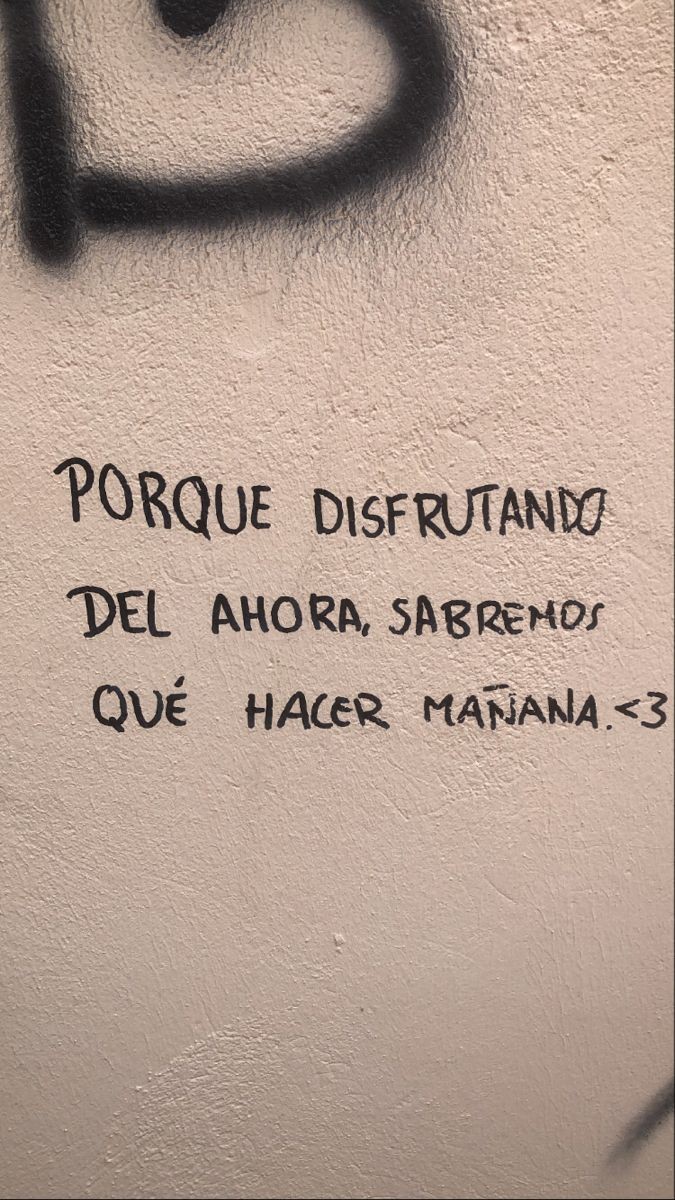 PORQUE DISFRUTANDO
DEL AHORA, SABREMOS
QUÉ HACER MAÑANA.<3